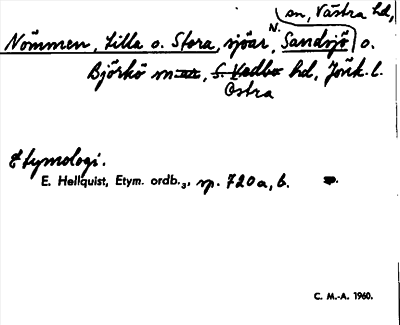 sn, Västra hd,
Nömmen, Lilla o. Stora, sjöar, N. Sandsjö o.
Björkö snar, S. Vedbo hd, Jönk. l.
Östra
Etymologi.
E. Hellquist, Etym. ordb.3, sp. 720 a, b.
C. M.-A. 1960.